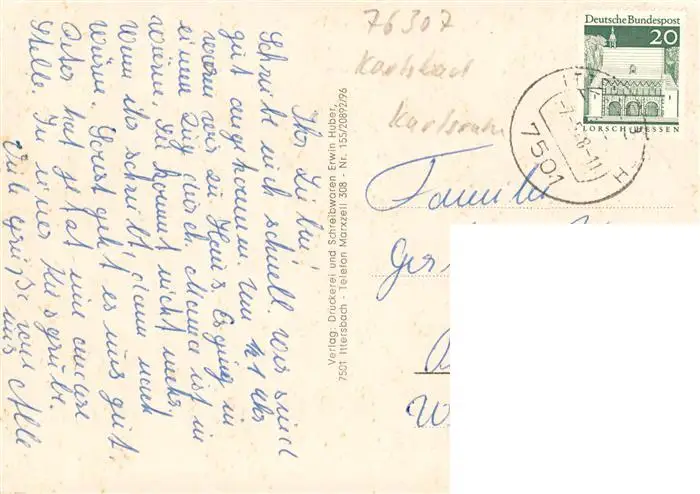 Ihr Lieben!
Schreibe nich schnell. wir sind
gut angekommen. Um 21 Uhr
waren wir zu Haus. Es ging in
einem Zug durch. Mama ist in
Wenn ihr schreibt, dann nach
Sonst geht es uns gut.
hat jetzt eine andere
Stelle. In einer Kiesgrube.
Viele Grüße von
uns Alle
Verlag: Druckerei und Schreibwaren Erwin Huber,
7501 Ittersbach - Telefon Marxzell 308 - Nr. 155/20892/96
76307
Karlsbad
Karlsruhe
Deutsche Bundespost
20
LORSCH/HESSEN
7501
Familie
Ger
W